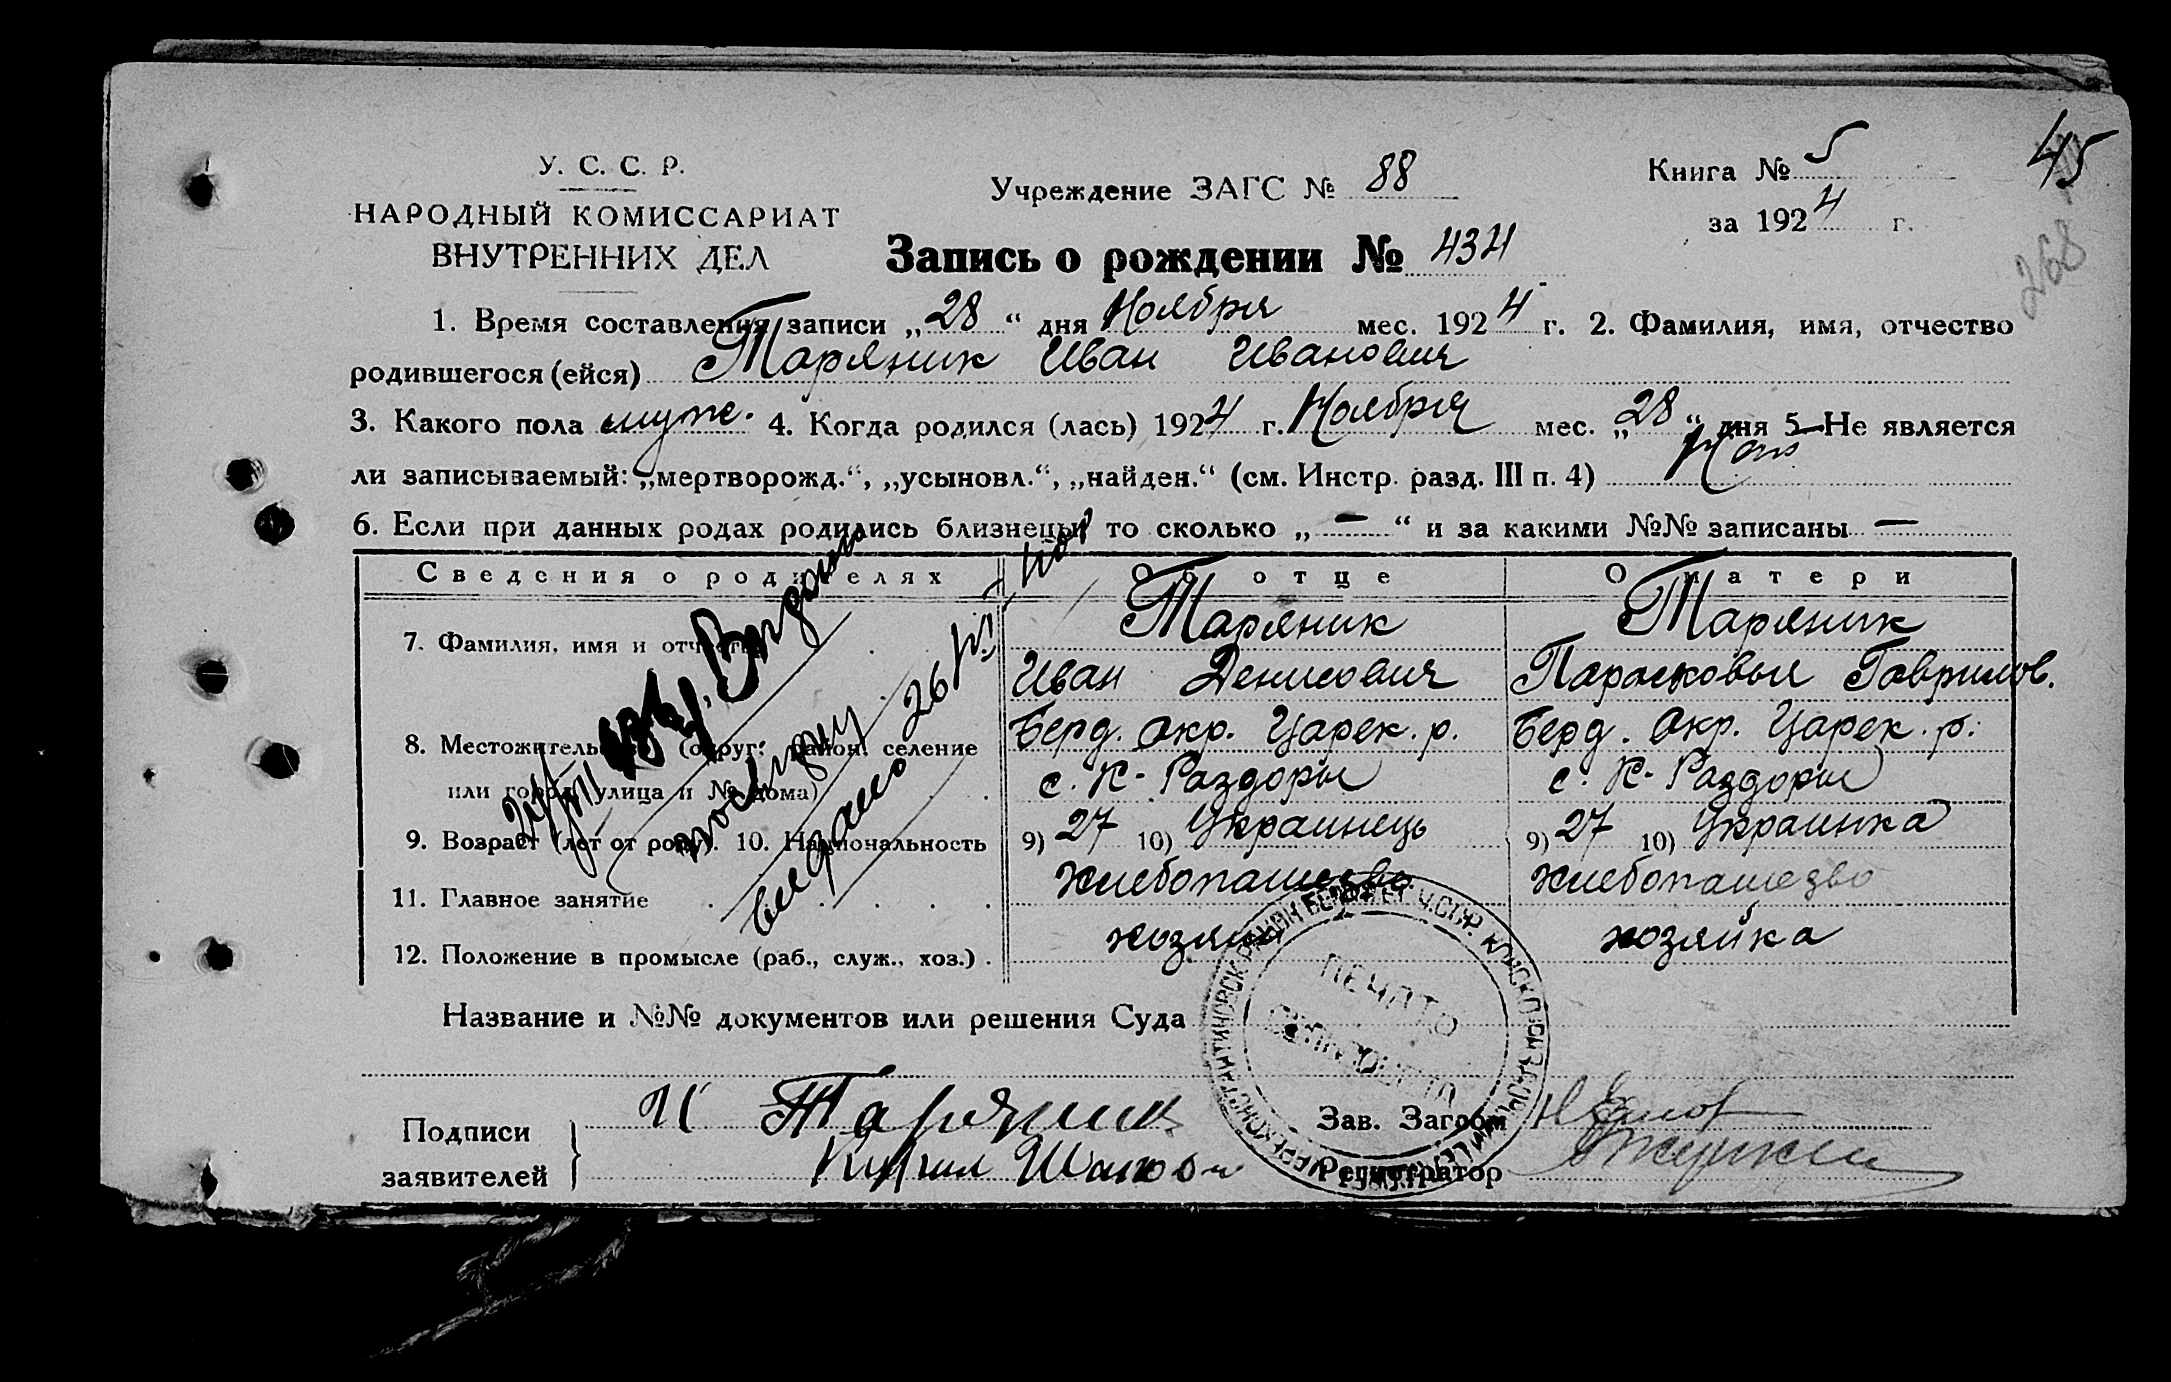 45
268
У. С. С. Р.
НАРОДНЫЙ КОМИССАРИАТ
ВНУТРЕННИХ ДЕЛ
Учреждение ЗАГС № 88
Книга № 5
за 1924 г.
Запись о рождении № 434
1. Время составления записи „28“ дня Ноября мес. 1924 г. 2. Фамилия, имя, отчество
родившегося (ейся) Таряник Иван Иванович
3. Какого пола муж. 4. Когда родился (лась) 1924 г. Ноября мес. „28“ дня 5. Не является
ли записываемый: „мертворожд.“, „усыновл.“, „найден.“ (см. Инстр. разд. III п. 4)
6. Если при данных родах родились близнецы, то сколько „ — “ и за какими №№ записаны —
Сведения о родителях Об отце О матери
7. Фамилия, имя и отчество Таряник Таряник
Иван Денисович Парасковья Гаврилов.
8. Местожительство (округ, район, селение Берд. окр. Царек. р. Берд. окр. Царек. р.
или город, улица и № дома) с. К-Раздоры с. К-Раздоры
9. Возраст (лет от роду). 10. Национальность 9) 27 10) Украинець 9) 27 10) Украинка
11. Главное занятие Хлебопашество
12. Положение в промысле (раб., служ., хоз.) хозяин хозяйка
Название и №№ документов или решения Суда
ПЕЧАТЬ
Подписи
заявителей
И Таряник
Зав. Загсом
Регистратор